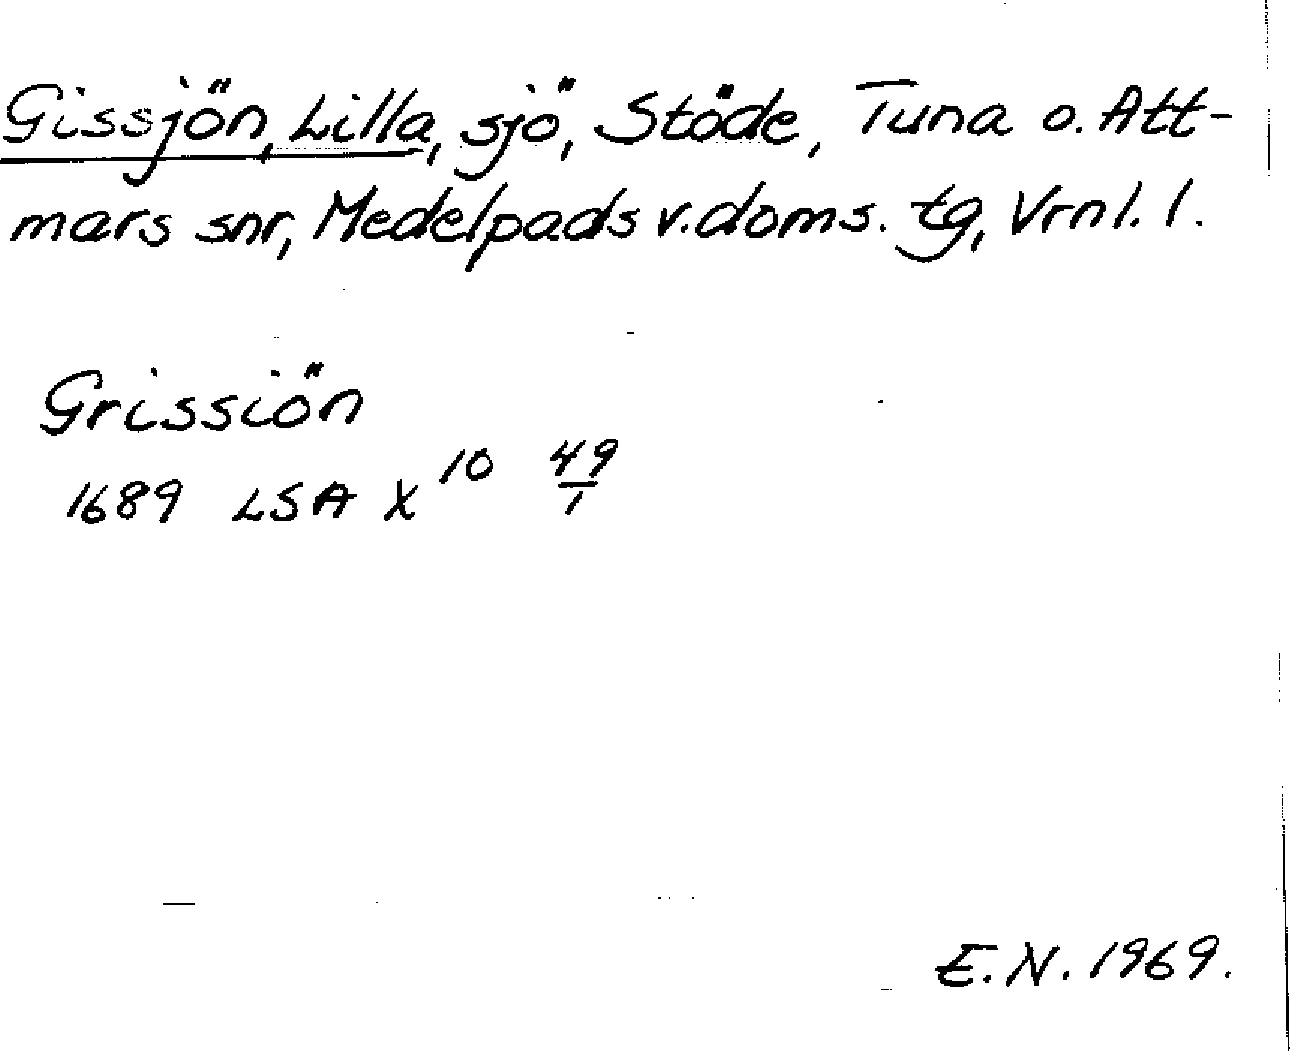 Gissjön, Lilla, sjö, Stöde, Tuna o. Att-
mars snr, Medelpads v. doms. tg, Vrnl. l.
Grissiön
1689 LSA X 10 49/1
E. N. 1969.